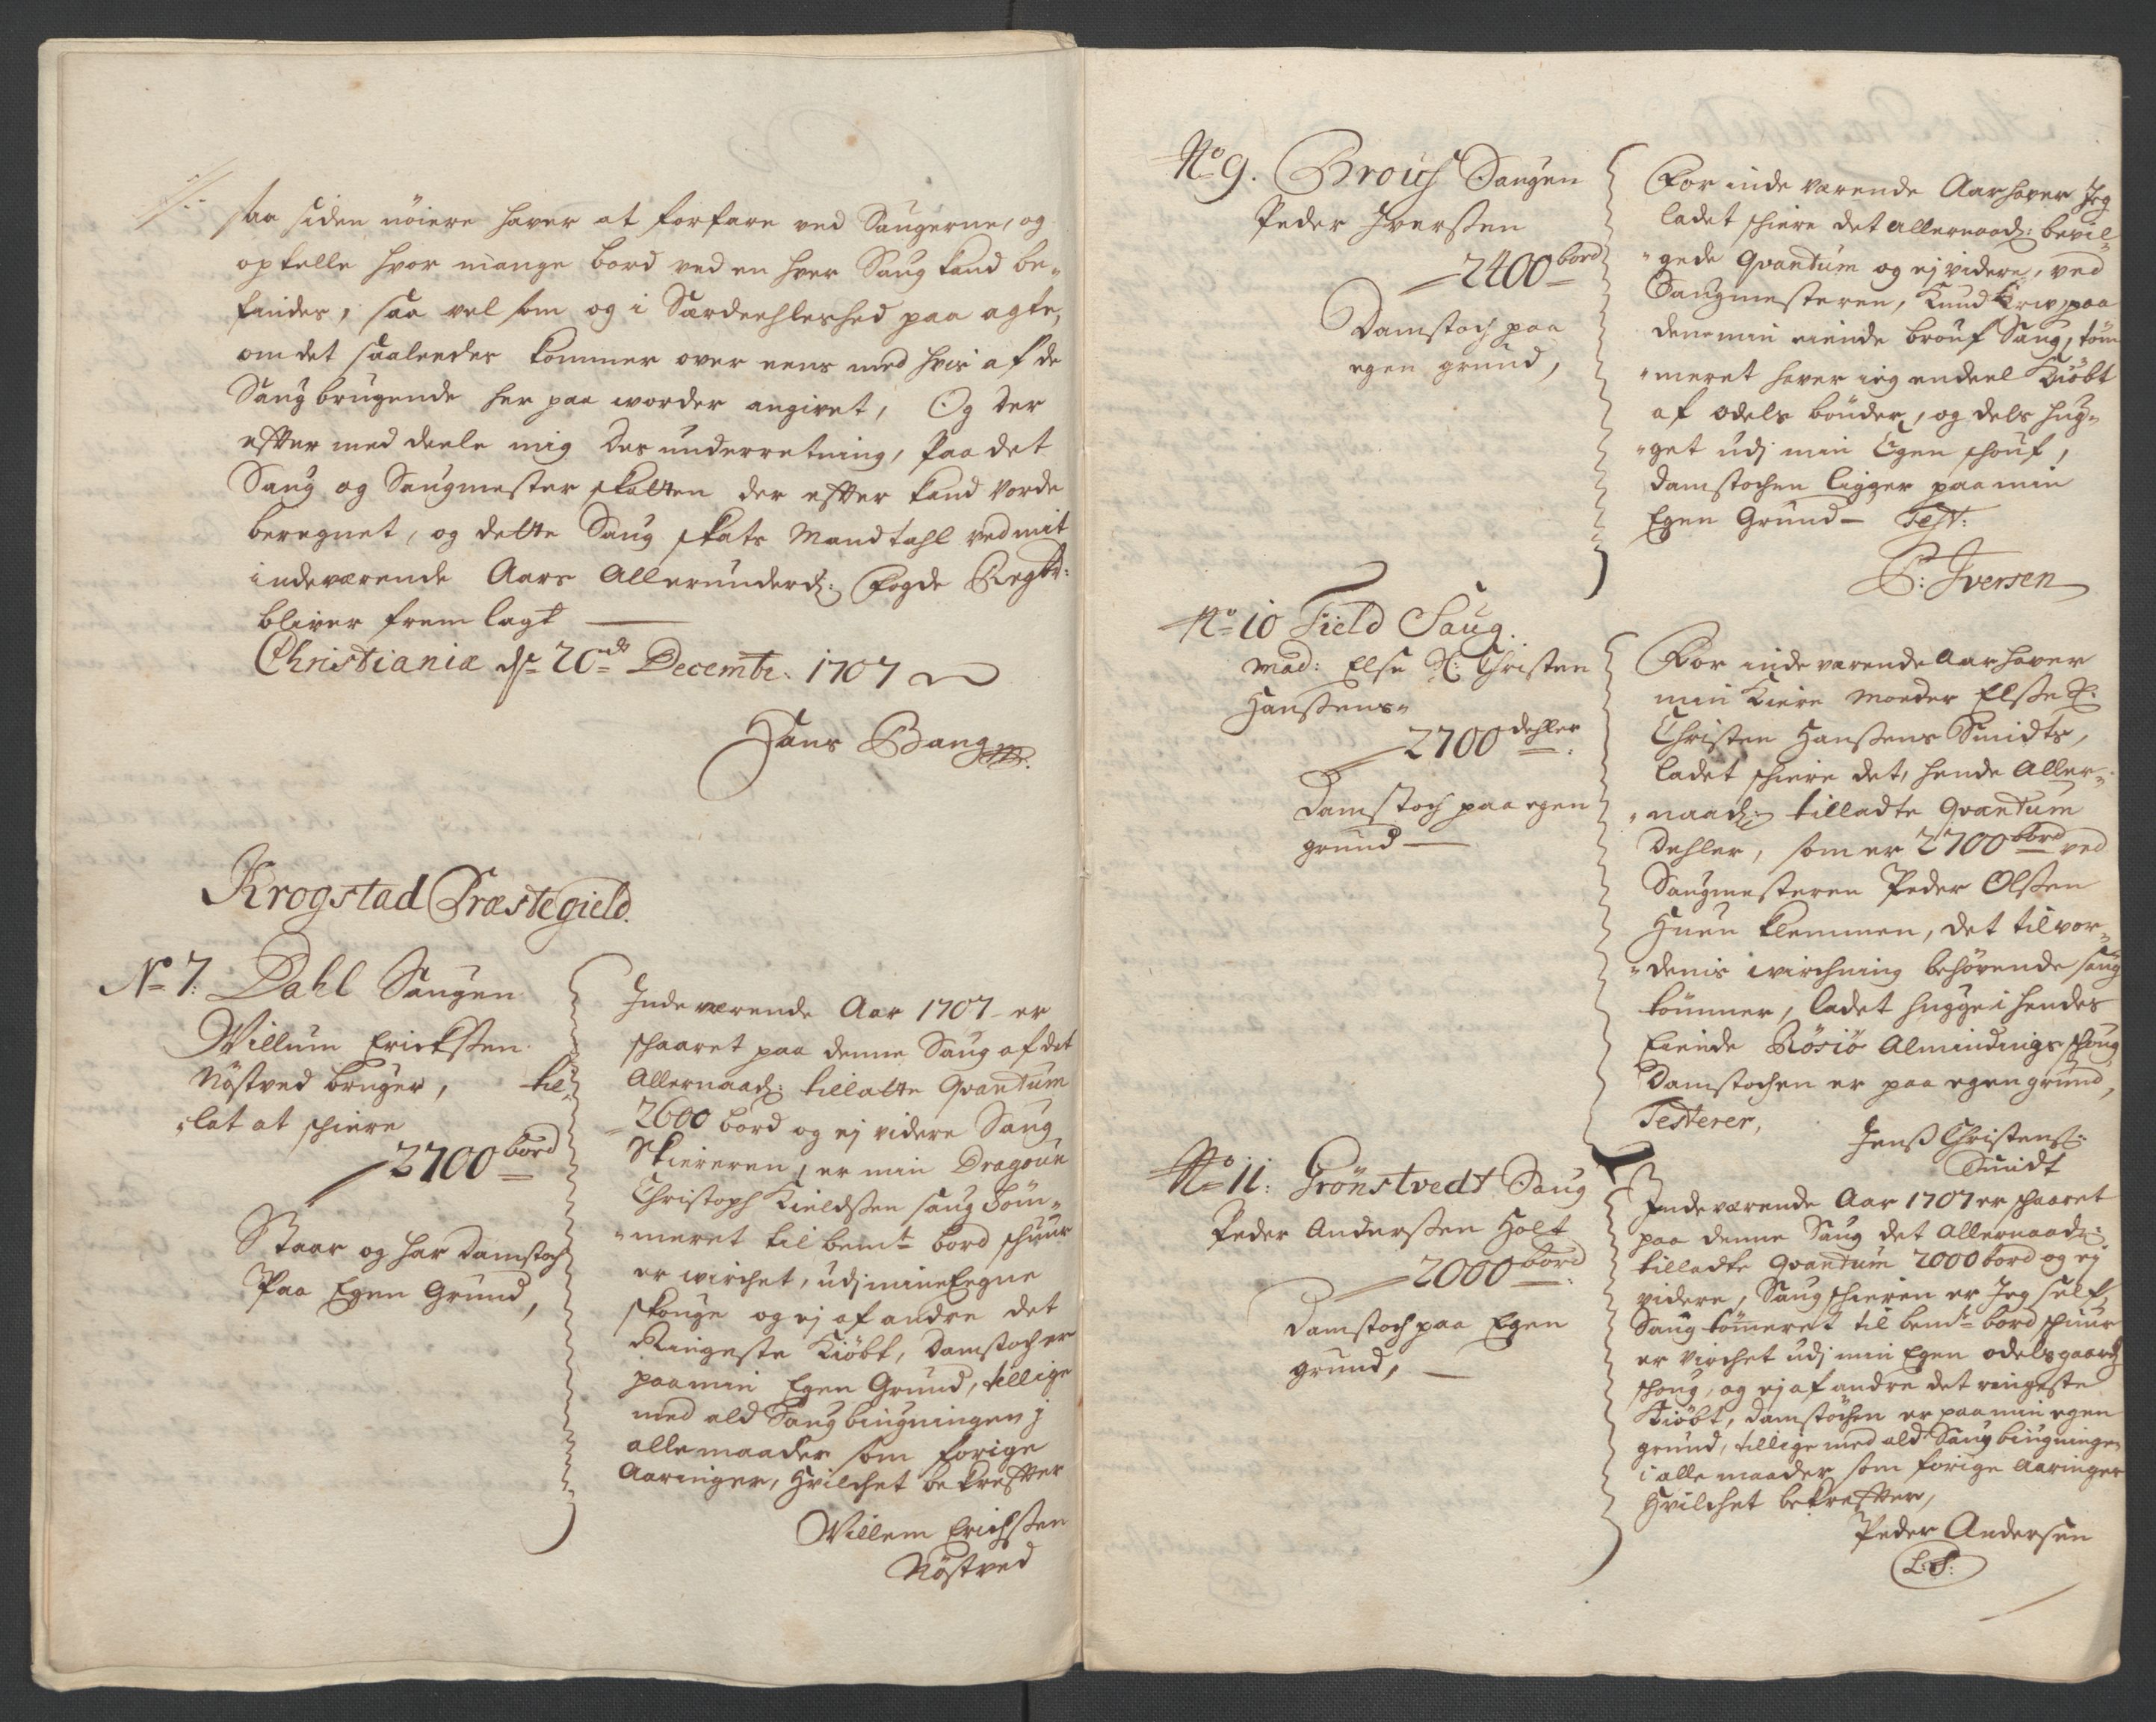 saa siden nöiere haver at forfare ved Saugerne, og
optelle hvor mange bord ved en hver Saug kand be,,
findes, saa vel som og i Særdeehleshed paa agte,
om det saaleedes kommer over eens med hvis af de
Saugbrugende her paa worder angivet, Og der
effter med deele mig des underretning, Paa det
Saug og Saugmester skatten der effter kand vorde
beregnet, og dette Saug skats Mandtahl ved mit
indeværende Aars Allerunderd: Fogde Regtb:
bliver frem lagt
Christianiæ d: 20de Decembr: 1707
Hans Bang
Krogstad Præstegield.
No 7: Dahl Saugen
Willum Erickssen
Nöstved bruger, til,,
,,lat at schiere
2700 bord
Staar og har damstoch
Paa Egen Grund,
Indeværende Aar 1707 er
schaaret paa denne Saug af det
Allernaad: tillatte Qvantum
2600 bord og ej videre Saug
Skiereren, er min Dragoun
Christoph Kieldssen saug töm,,
,,meret til bemte bord schuur
er wirchet, udj mine Eegne
skouge og ej af andre det
Ringeste Kiöbt, damstoch er
paa min Egen Grund, tillige
med ald Saugbiugningen j
alle maader som forige
Aaringer, Hvilchet bekreffter
Willem Erichssen
Nöstved
No 9. Brouf Saugen
Peder Iverssen
2400 bord
Damstoch paa
egen grund,
For inde værende Aar haver Jeg
ladet schiere det allernaad: bevil,,
,,gede Qvantum og ej videre, ved
Saugmesteren, Knud paa
denne min eiende brouf Saug, töm
,,meret haver ieg endeel Kiöbt
af odels bönder, og dels hug,,
,,get udj min Egen schouf,
damstochen ligger paa min
Egen Grund Test:
P: Iversen
No 10 Field Saug.
Mad: Else Sl: Christen
Hanssens,,
2700 dehler
Damstoch paa egen
grund
For inde værende Aar haver
min Kiere Moeder Elsse Sl:
Christen Hanssens Smidts,
ladet schiere det, hende Aller,,
,,naad: tilladte Qvantum
Dehler, som er 2700 bord ved
Saugmesteren Peder Olssen
Huen klemmen, det til vor,,
,,denis wirchning behövende saug
tömmer, ladet hugge i hendes
Eiende Rösiö Almindings schoug
Damstochen er paa egen grund,
Testerer,
Jenss Christenss:
Smidt
No 11: Grönstvedt Saug
Peder Anderssen Holt
2000 bord
Damstoch paa Egen
grund,
Indeværende Aar 1707 er schaaret
paa denne Saug det Allernaad:
tilladte Qvantum 2000 bord og ej
videre, Saug schieren er Jeg self,
Saug tömeret til bemte bord schuur
er virchet udj min Egen odelsgaards
schoug, og ej af andre det ringeste
Kiöbt, damstochen er paa min egen
grund, tillige med ald Saug biugningen
i alle maader som forige Aaringer
Hvilchet bekreffter,
Peder Andersen
L:S: